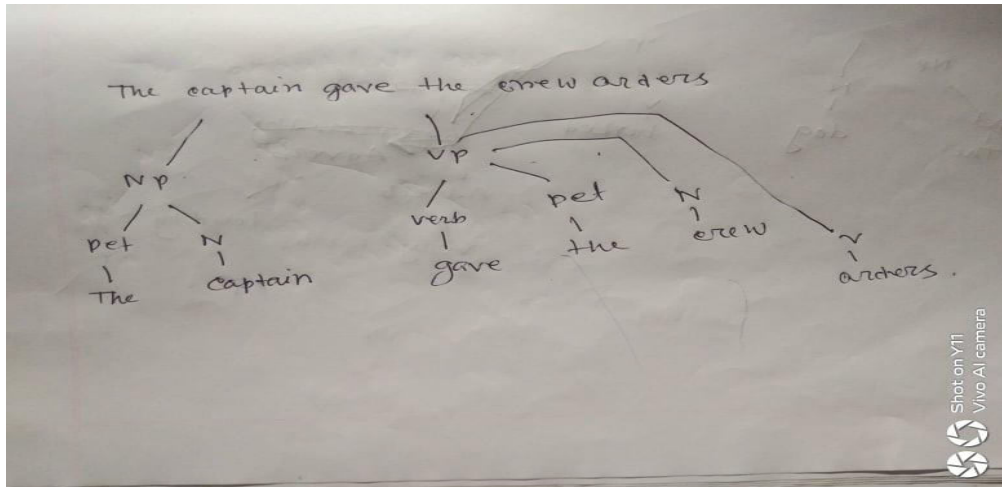 The captain gave the crew orders
NP
VP
Det
N
verb
Det
N
N
The
captain
gave
the
crew
orders.
Shot on Y11
Vivo AI camera